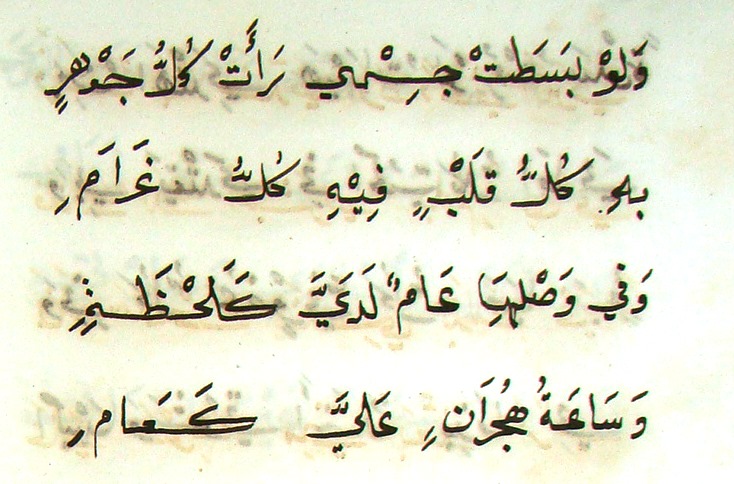 وَلَوْ بَسَطَتْ جِسْمِي رَأَتْ كُلَّ جَوْهَرٍ
بِهِ كُلُّ قَلْبٍ فِيْهِ كُلُّ غَرَامِ
وَفي وَصْلِهَا عَامٌ لَدَيَّ كَلَحْظَةٍ
وَسَاعَةُ هُجْرَانٍ عَلَيَّ كَعَامِ